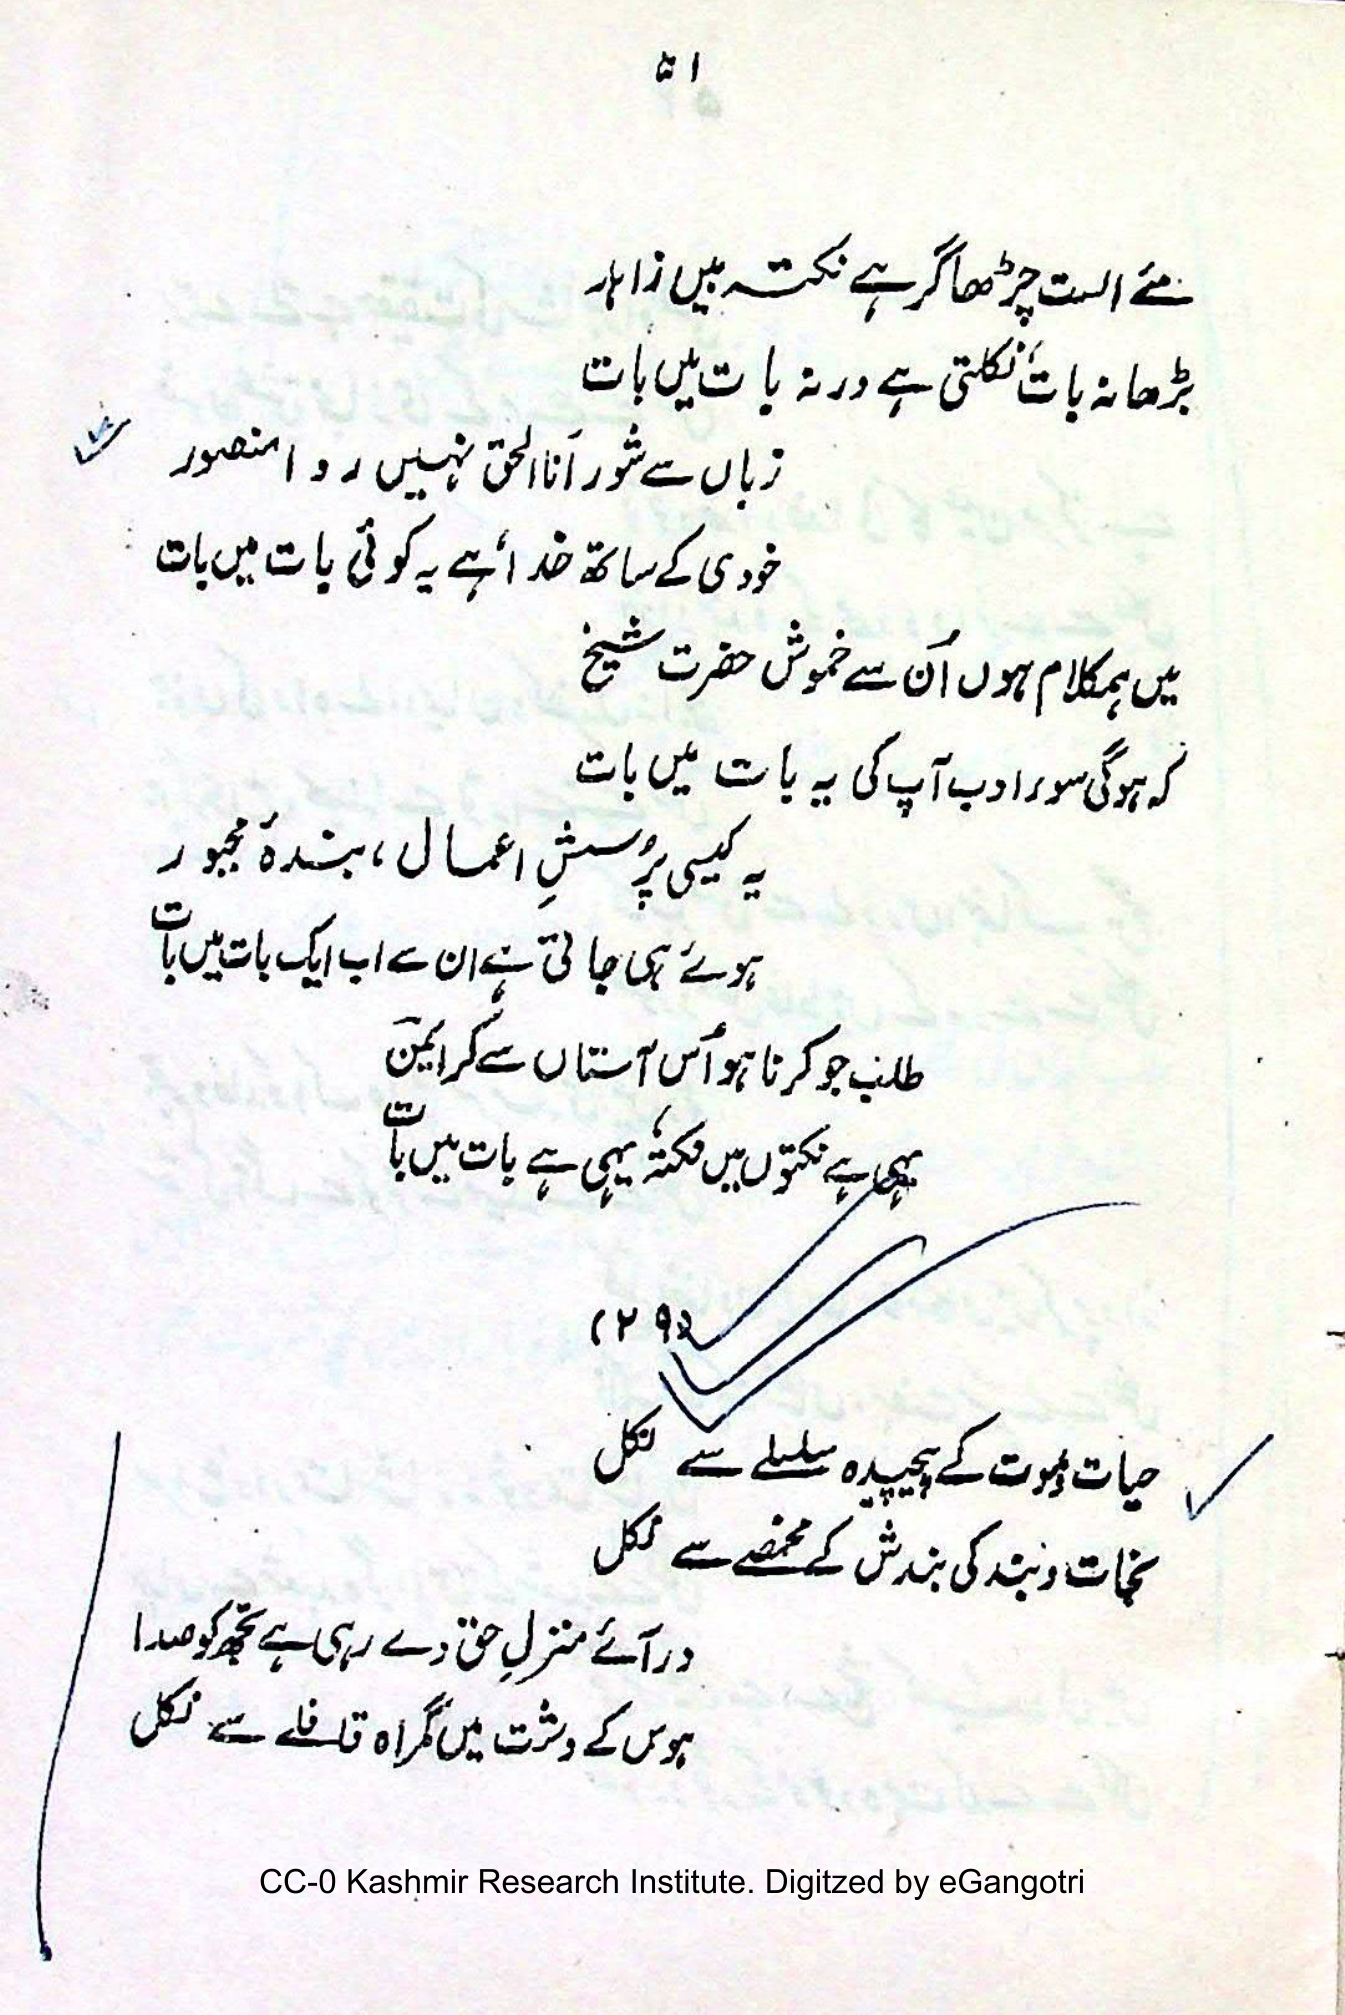 ۵۱
مئے الست چڑھا گر ہے نکتہ میں زاہد
بڑھا نہ بات نکلتی ہے ورنہ بات میں بات
زباں سے شور اَنا الحق نہیں روا منصور
خودی کے ساتھ خدا ہے یہ کوئی بات میں بات
میں ہمکلام ہوں اُن سے خموش حضرت شیخ
کہ ہوگی سوء ادب آپ کی یہ بات میں بات
یہ کیسی پُرسشِ اعمال، بندۂ مجبور
ہوئے ہی جاتی ہے ان سے اب ایک بات میں بات
طلب جو کرنا ہو اُس آستاں سے کر ایمنؔ
یہی ہے نکتوں میں نکتہ یہی ہے بات میں بات
(۲۹)
حیات و موت کے پیچیدہ سلسلے سے نکل
نجات و بند کی بندش کے مخمصے سے نکل
درآئے منزلِ حق دے رہی ہے تجھ کو صدا
ہوس کے دشت میں گمراہ قافلے سے نکل
CC-0 Kashmir Research Institute. Digitzed by eGangotri